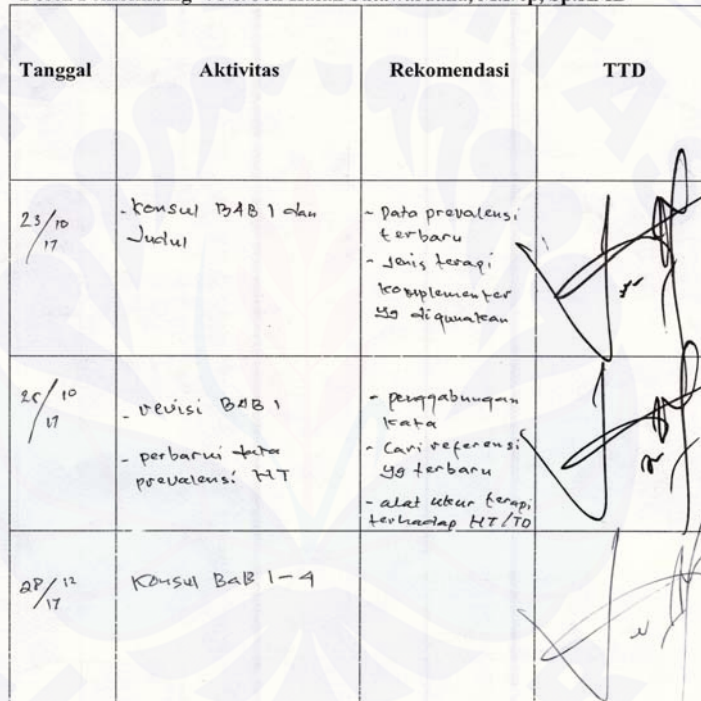 Tanggal Aktivitas Rekomendasi TTD
23/10 17
- Konsul BAB 1 dan
Judul
- Data prevalensi
terbaru
- Jenis terapi
komplementer
yg digunakan
10 17
- revisi BAB 1
- perbarui data
prevalensi HT
- penggabungan
kata
- Cari referensi
yg terbaru
- alat ukur terapi
terhadap HT/TD
28/12 17
Konsul BAB 1-4